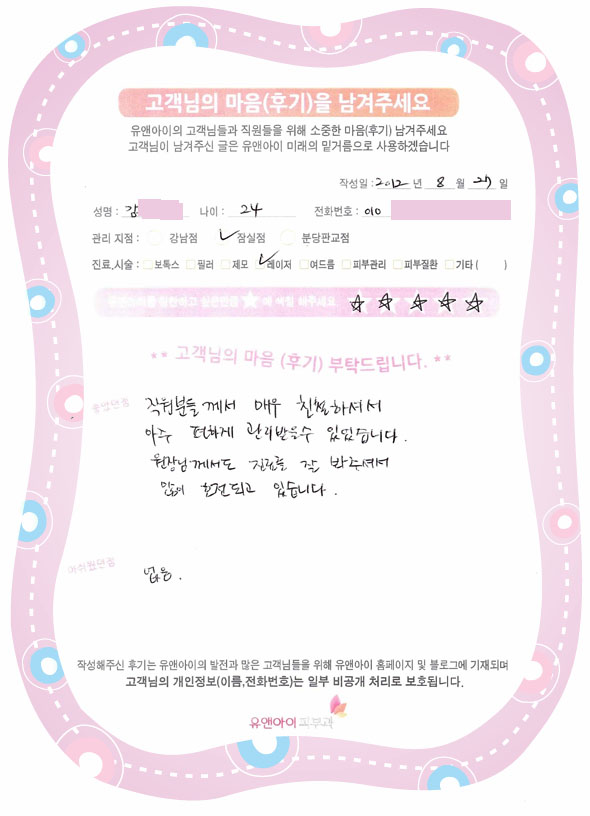 고객님의 마음(후기)을 남겨주세요
유앤아이의 고객님들과 직원들을 위해 소중한 마음(후기) 남겨주세요
고객님이 남겨주신 글은 유앤아이 미래의 밑거름으로 사용하겠습니다
작성일 : 2012 년 8 월 27 일
성명 : 강 나이 : 24 전화번호 : 010
관리 지점 : 강남점 잠실점 분당판교점
진료,시술 : 보톡스 필러 제모 레이저 여드름 피부관리 피부질환 기타 ( )
유앤아이를 칭찬하고 싶은만큼 ★에 색칠 해주세요
** 고객님의 마음 (후기) 부탁드립니다. **
좋았던점
직원분들께서 매우 친절하셔서
아주 편하게 관리받을수 있었습니다.
원장님께서도 진료를 잘 봐주셔서
많이 호전되고 있습니다.
아쉬웠던점
없음.
작성해주신 후기는 유앤아이의 발전과 많은 고객님들을 위해 유앤아이 홈페이지 및 블로그에 기재되며
고객님의 개인정보(이름,전화번호)는 일부 비공개 처리로 보호됩니다.
유앤아이 피부과